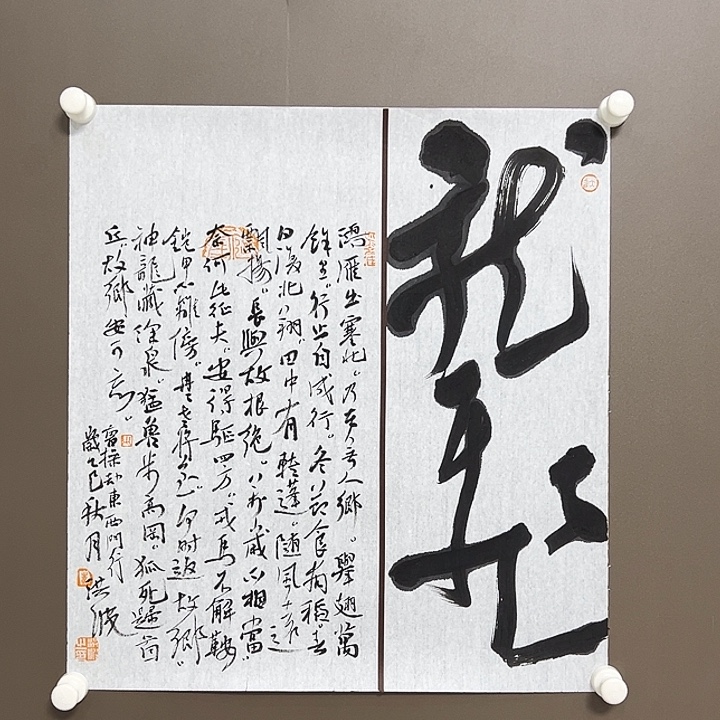 龍飛
鴻雁出塞北乃在無人鄉舉翅萬
餘里行止自成行冬節食南稻春
日復北翔田中有轉蓬隨風遠
飄揚長與故根絕萬歲不相當
奈何此征夫安得驅四方戎馬不解鞍
鎧甲不離傍冉冉老將至何時返故鄉
神龍藏深泉猛獸步高岡狐死歸首
丘故鄉安可忘
曹操却東西門行
歲乙巳秋月洪波